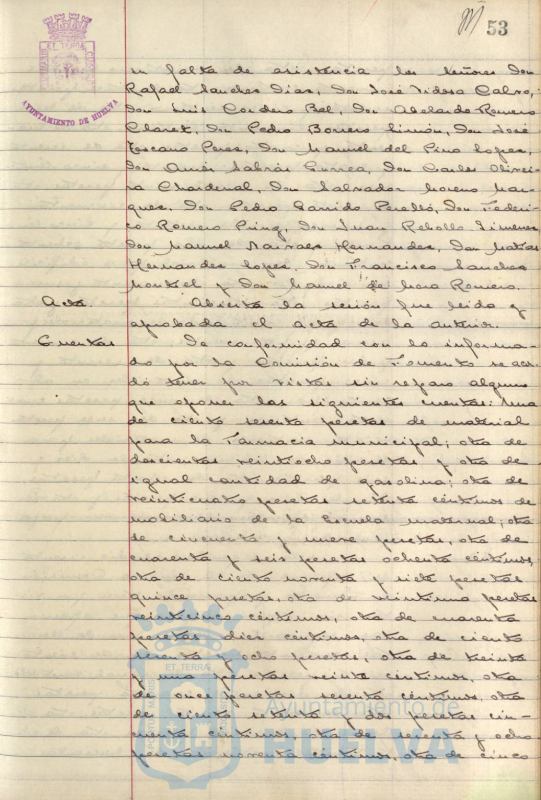 53
AYUNTAMIENTO DE HUELVA
su falta de asistencia los Señores Don
Rafael Sanchez Diaz, Don José Vidosa Calvo,
Don Luis Cordero Bel, Don Abelardo Romero
Claret, Don Pedro Borrero Limón, Don José
Toscano Perez, Don Manuel del Pino Lopez,
Don Amós Sabrás Gurrea, Don Carlos Olivei-
ra Chardenal, Don Salvador Moreno Mar-
quez, Don Pedro Garrido Perelló, Don Federi-
co Romero Don Juan Rebollo Jimenez
Don Manuel Narvaez Hernandez, Don Matias
Hernandez Lopez, Don Francisco Sanchez
Montiel y Don Manuel de Mora Romero.
Acta. Abierta la sesión fue leida y
aprobada el acta de la anterior.
Cuentas De conformidad con lo informa-
do por la Comisión de Fomento se acor-
dó tener por vistas sin reparo alguno
que oponer las siguientes cuentas: Una
de ciento sesenta pesetas de material
para la Farmacia municipal; otra de
doscientas veintiocho pesetas y otra de
igual cantidad de gasolina; otra de
veinticuatro pesetas setenta céntimos de
mobiliario de la Escuela maternal; otra
de cincuenta y nueve pesetas, otra de
cuarenta y seis pesetas ochenta céntimos,
otra de ciento noventa y siete pesetas
quince pesetas, otra de veintiuna pesetas
veinticinco céntimos, otra de cuarenta
pesetas diez céntimos, otra de ciento
sesenta y ocho pesetas, otra de treinta
y una pesetas veinte céntimos, otra
de once pesetas sesenta céntimos, otra
de ciento setenta y dos pesetas cin-
cuenta céntimos, otra de sesenta y ocho
pesetas noventa céntimos, otra de cinco
Ayuntamiento de
HUELVA